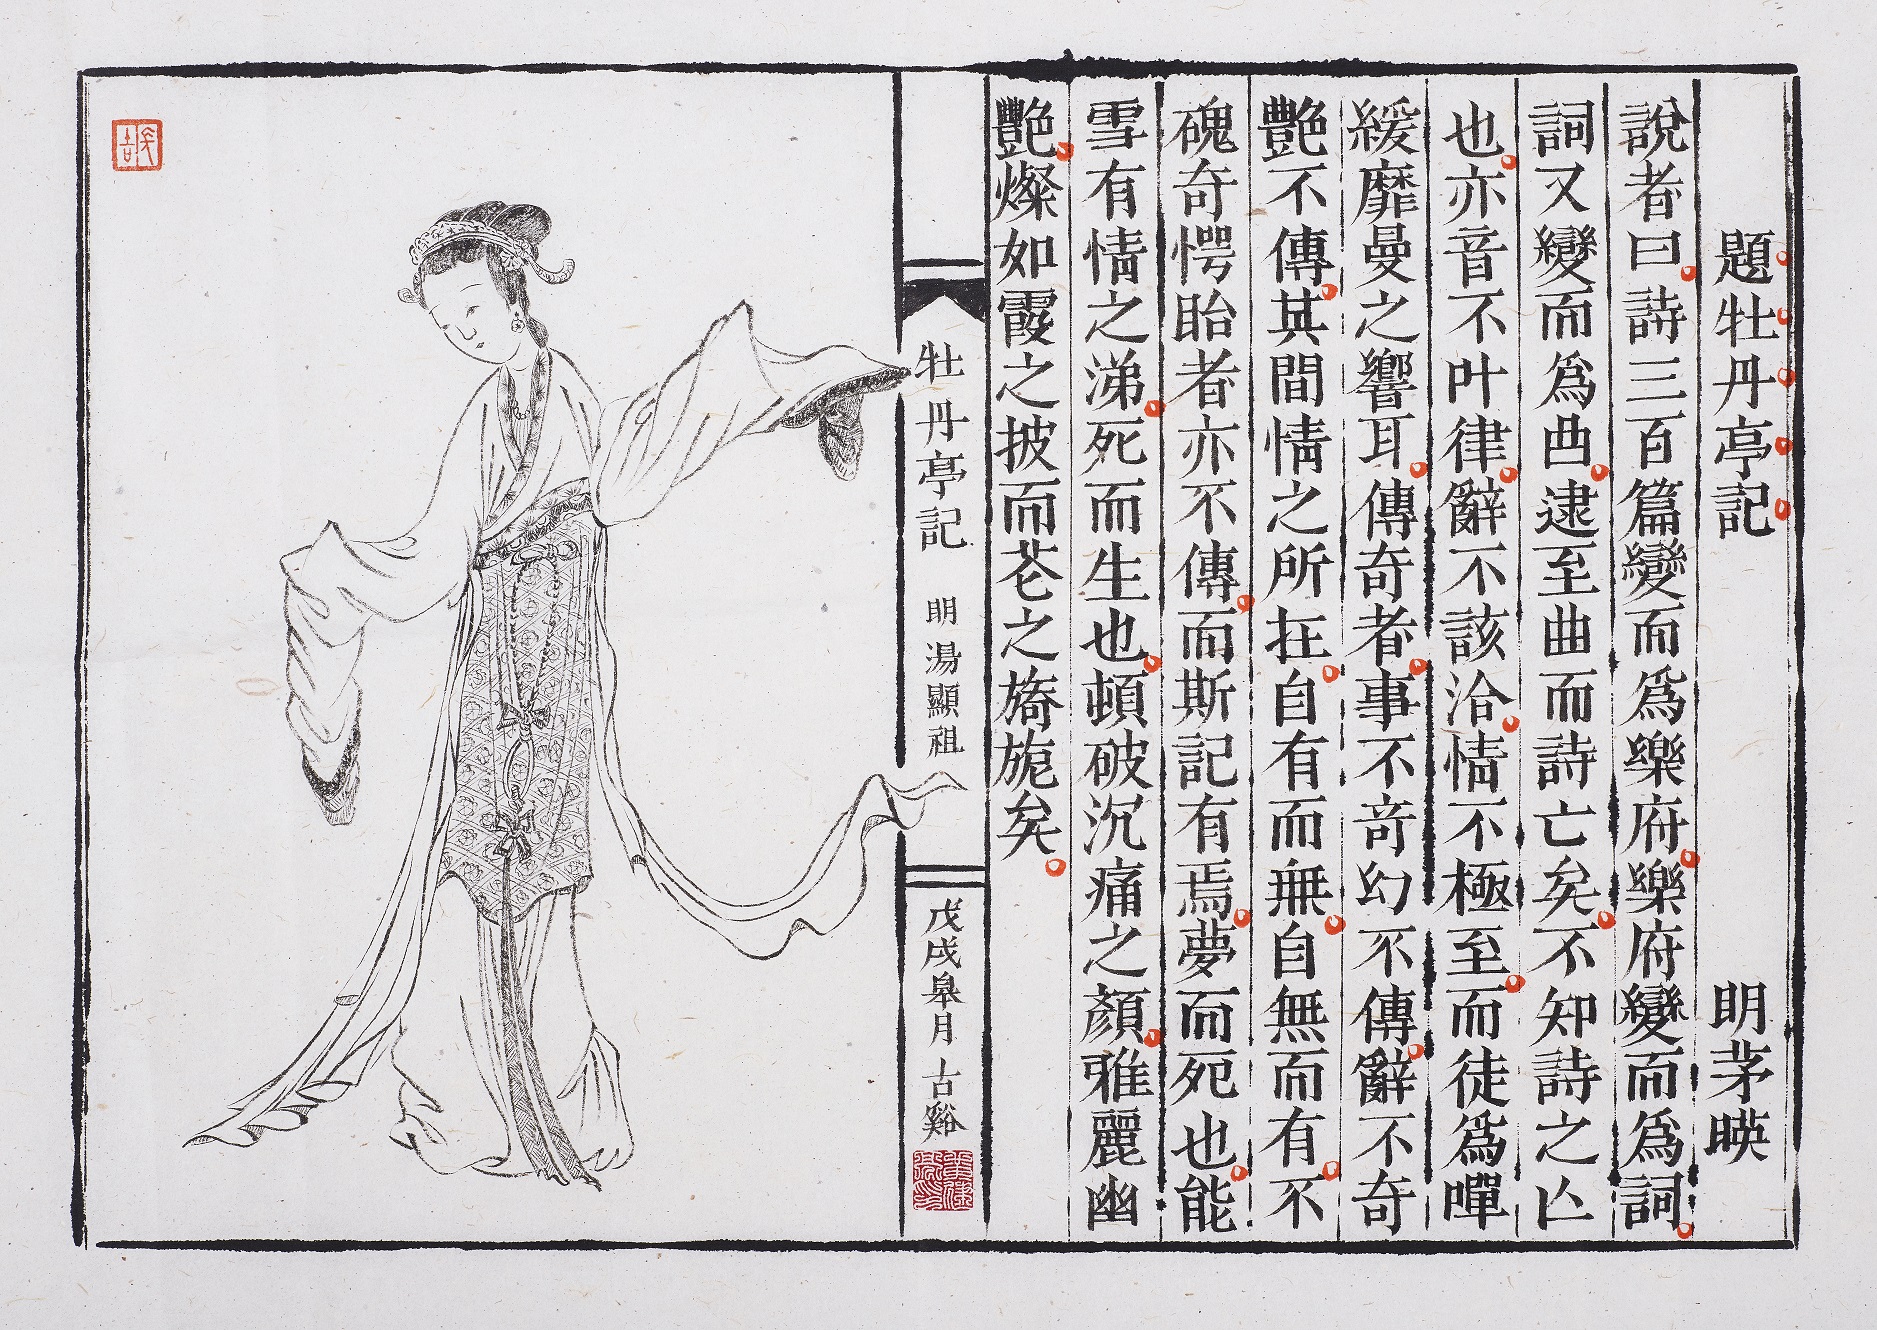 題牡丹亭記 明茅暎
說者曰。詩三百篇變而爲樂府。樂府變而爲詞。
詞又變而爲曲。逮至曲而詩亡矣。不知詩之亾
也。亦音不叶律。辭不該洽。情不極至。而徒爲嘽
緩靡曼之響耳。傳奇者。事不奇幻不傳。辭不奇
艷不傳。其間情之所在。自有而無。自無而有。不
磈奇愕眙者亦不傳。而斯記有焉。夢而死也。能
雪有情之涕。死而生也。頓破沉痛之顏。雅麗幽
艷。燦如霞之披而花之旖旎矣。
牡丹亭記 明湯顯祖
戊戌皋月 古谿